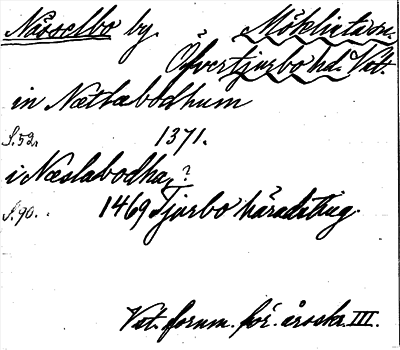 Nässelbo by. Möklinta sn.
Öfvertjurbo hd. Vstl.
in Nætlabodhum
S. 52. 1371.
i Næslabodha, ?
S. 90. 1469 Tjurbo häradsting.
Vst. fornm. för. årsskr. III.